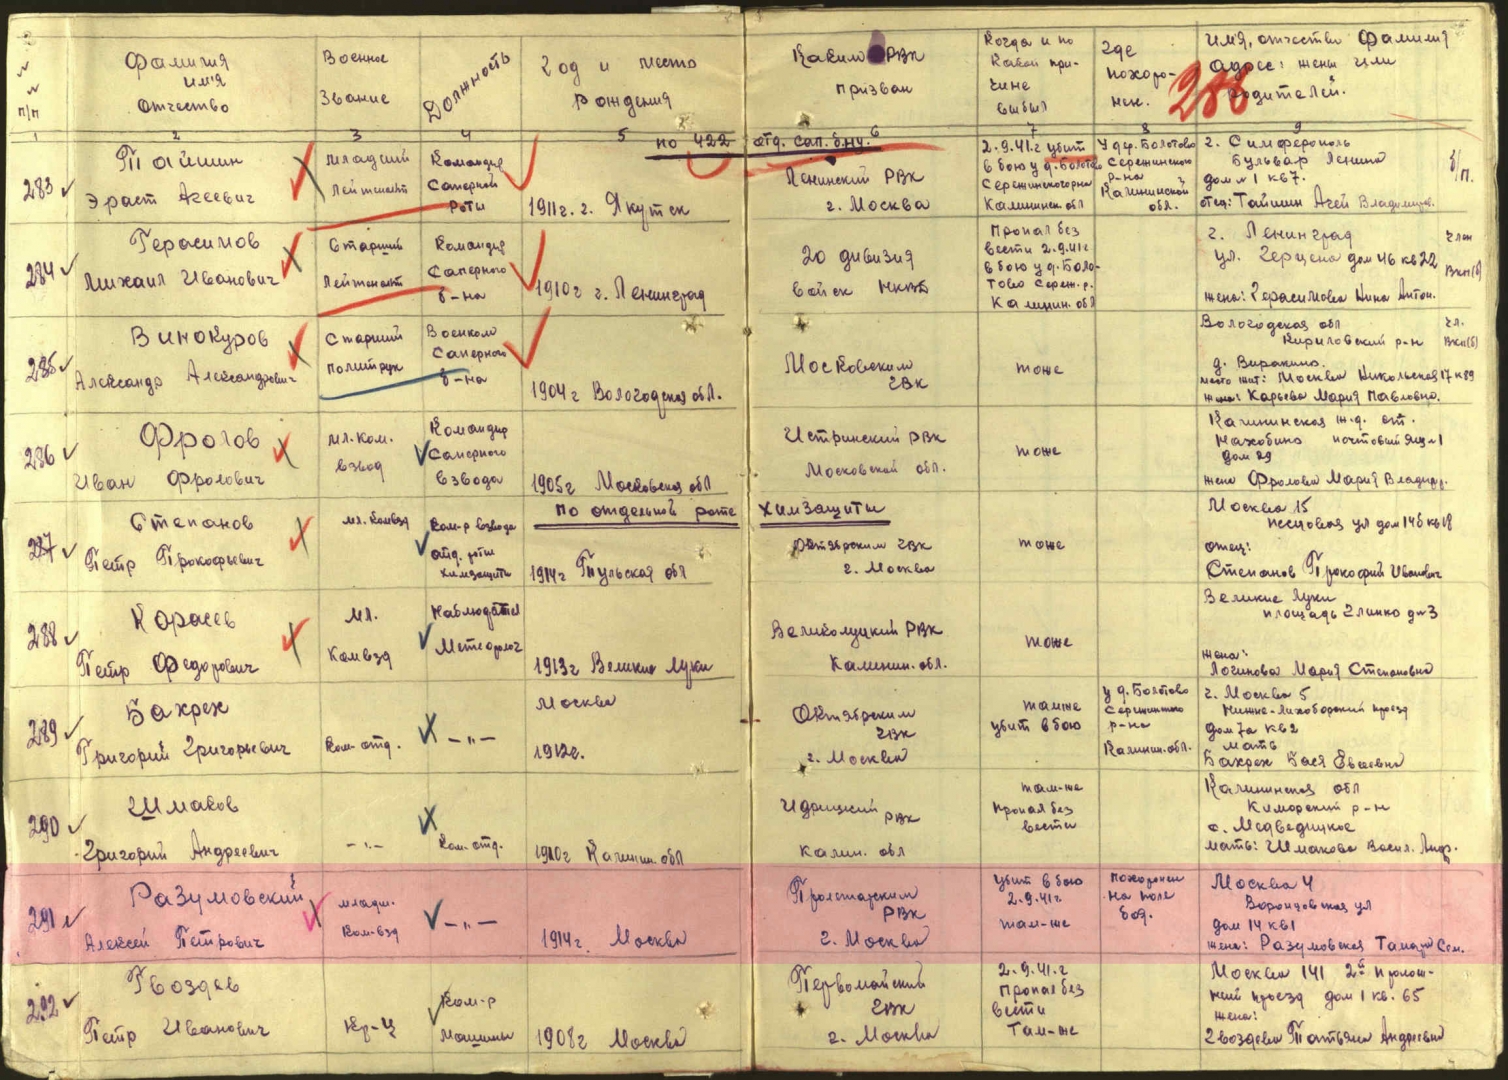 №№ п/п
Фамилия имя отчество
Военное Звание
Должность
Год и место рождения
Каким РВК призван
Когда и по какой причине выбыл
Где похоронен.
Имя, отчество Фамилия
Адрес: жены или родителей.
288
1 2 3 4 5 6 7 8 9
по 422 отд. сап. б-ну.
283 Тайшин Эраст Агеевич
Младший Лейтенант
Командир Саперной роты
1911 г. г. Якутск
Ленинский РВК г. Москва
2.9.41 г убит в бою у д. Болотово Сережинского р-на Калининск. обл
У дер. Болотово Сережинского р-на Калининской обл.
г. Симферополь Бульвар Ленина дом № 1 кв 7.
отец: Тайшин Агей Владимиров.
б/п.
284 Герасимов Михаил Иванович
Старший Лейтенант
Командир Саперного б-на
1910 г г. Ленинград
20 дивизия войск НКВД
Пропал без вести 2.9.41 г в бою у д. Болотово Сереж. р. Калинин. обл
г. Ленинград ул. Герцена дом 46 кв 22
жена: Герасимова Нина Антон.
Член ВКП(б)
285 Винокуров Александр Александрович
Старший политрук
Военком Саперного б-на
1904 г Вологодская обл.
Московским ГВК
тоже
Вологодская обл Кириловский р-н
место жит: Москва Никольская 17 к 89
жена: Карьева Мария Павловна.
Чл. ВКП(б)
286 Фролов Иван Фролович
мл. ком. взвод
Командир Саперного взвода
1905 г Московская обл
Истринский РВК Московской обл.
тоже
Калининская ж.д. ст. Нахобино почтовый ящи 1 дом 29
жена Фролова Мария Владимир.
по отдельной роте химзащиты
287 Степанов Петр Прокофьевич
мл. комвзв
Ком-р взвода отд. роты химзащиты
1914 г Тульская обл
Октябрским ГВК г. Москва
тоже
Москва 15 песцовая ул дом 14б кв 18
отец:
Степанов Прокофий Иванович
288 Карасев Петр Федорович
Мл. Комвзв
Наблюдател Метеоролог
1913 г Великие Луки
Великолуцкий РВК Калинин. обл.
тоже
Великие Луки площадь Глинко д № 3
жена:
Логинова Мария Степановна
289 Бахрех Григорий Григорьевич
Ком-отд.
— „ —
Москва 1912 г.
Октябрским ГВК г. Москва
там же убит в бою
у д. Болотово Сережинского р-на Калинин. обл.
г. Москва 5 Нижне-Лихоборский проезд дом 7а кв 2
мать
Бахрех Бася Евсеевна
290 Шмаков Григорий Андреевич
— „ —
Ком. отд.
1910 г Калинин. обл
Идрицкий РВК Калин. обл
там-же Пропал без вести
Калининская обл Киморский р-н с. Медведицкое
мать: Шмакова Васил. Андр.
291 Разумовский Алексей Петрович
младш. Ком-взв
— „ —
1914 г. Москва
Пролетарским РВК г. Москва
Убит в бою 2.9.41 г. там-же
похоронен на поле боя.
Москва 4 Воронцовская ул дом 14 кв 1
жена: Разумовская Тамара Сем.
292 Гвоздев Петр Иванович
Кр-ц
Ком-р Машины
1908 г Москва
Первомайский ГВК г. Москва
2.9.41. г Пропал без вести Там-же
Москва 141 2й проезд дом 1 кв. 65
жена:
Гвоздева Татьяна Андреевна